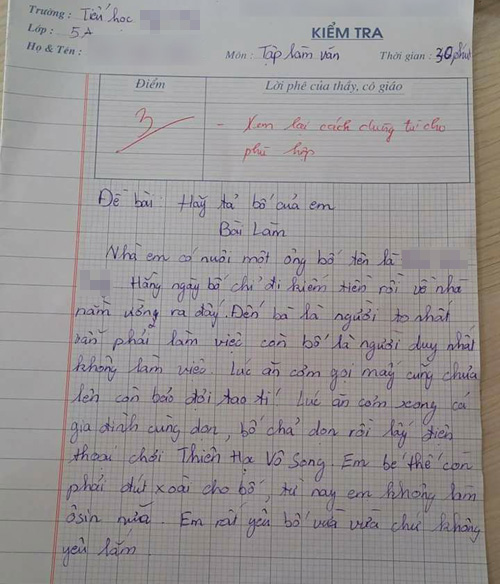 Trường : Tiểu học
Lớp : 5A
Họ & Tên :
KIỂM TRA
Môn : Tập làm văn Thời gian : 30 phút
Điểm Lời phê của thầy, cô giáo
3 - Xem lại cách dùng từ cho
phù hợp
Đề bài : Hãy tả bố của em
Bài Làm
Nhà em có nuôi một ông bố tên là
Hằng ngày bố chỉ đi kiếm tiền rồi về nhà
nằm ưỡng ra đấy. Đến bà là người to nhất
vẫn phải làm việc còn bố là người duy nhất
không làm việc. Lúc ăn cơm gọi mấy cũng chưa
lên còn bảo đợi tao tí. Lúc ăn cơm xong cả
gia đình cùng dọn, bố chả dọn rồi lấy điện
thoại chơi Thiên Hạ Vô Song. Em bé thế còn
phải đút xoài cho bố, từ nay em không làm
ôsin nữa. Em rất yêu bố vừa vừa chứ không
yêu lắm.